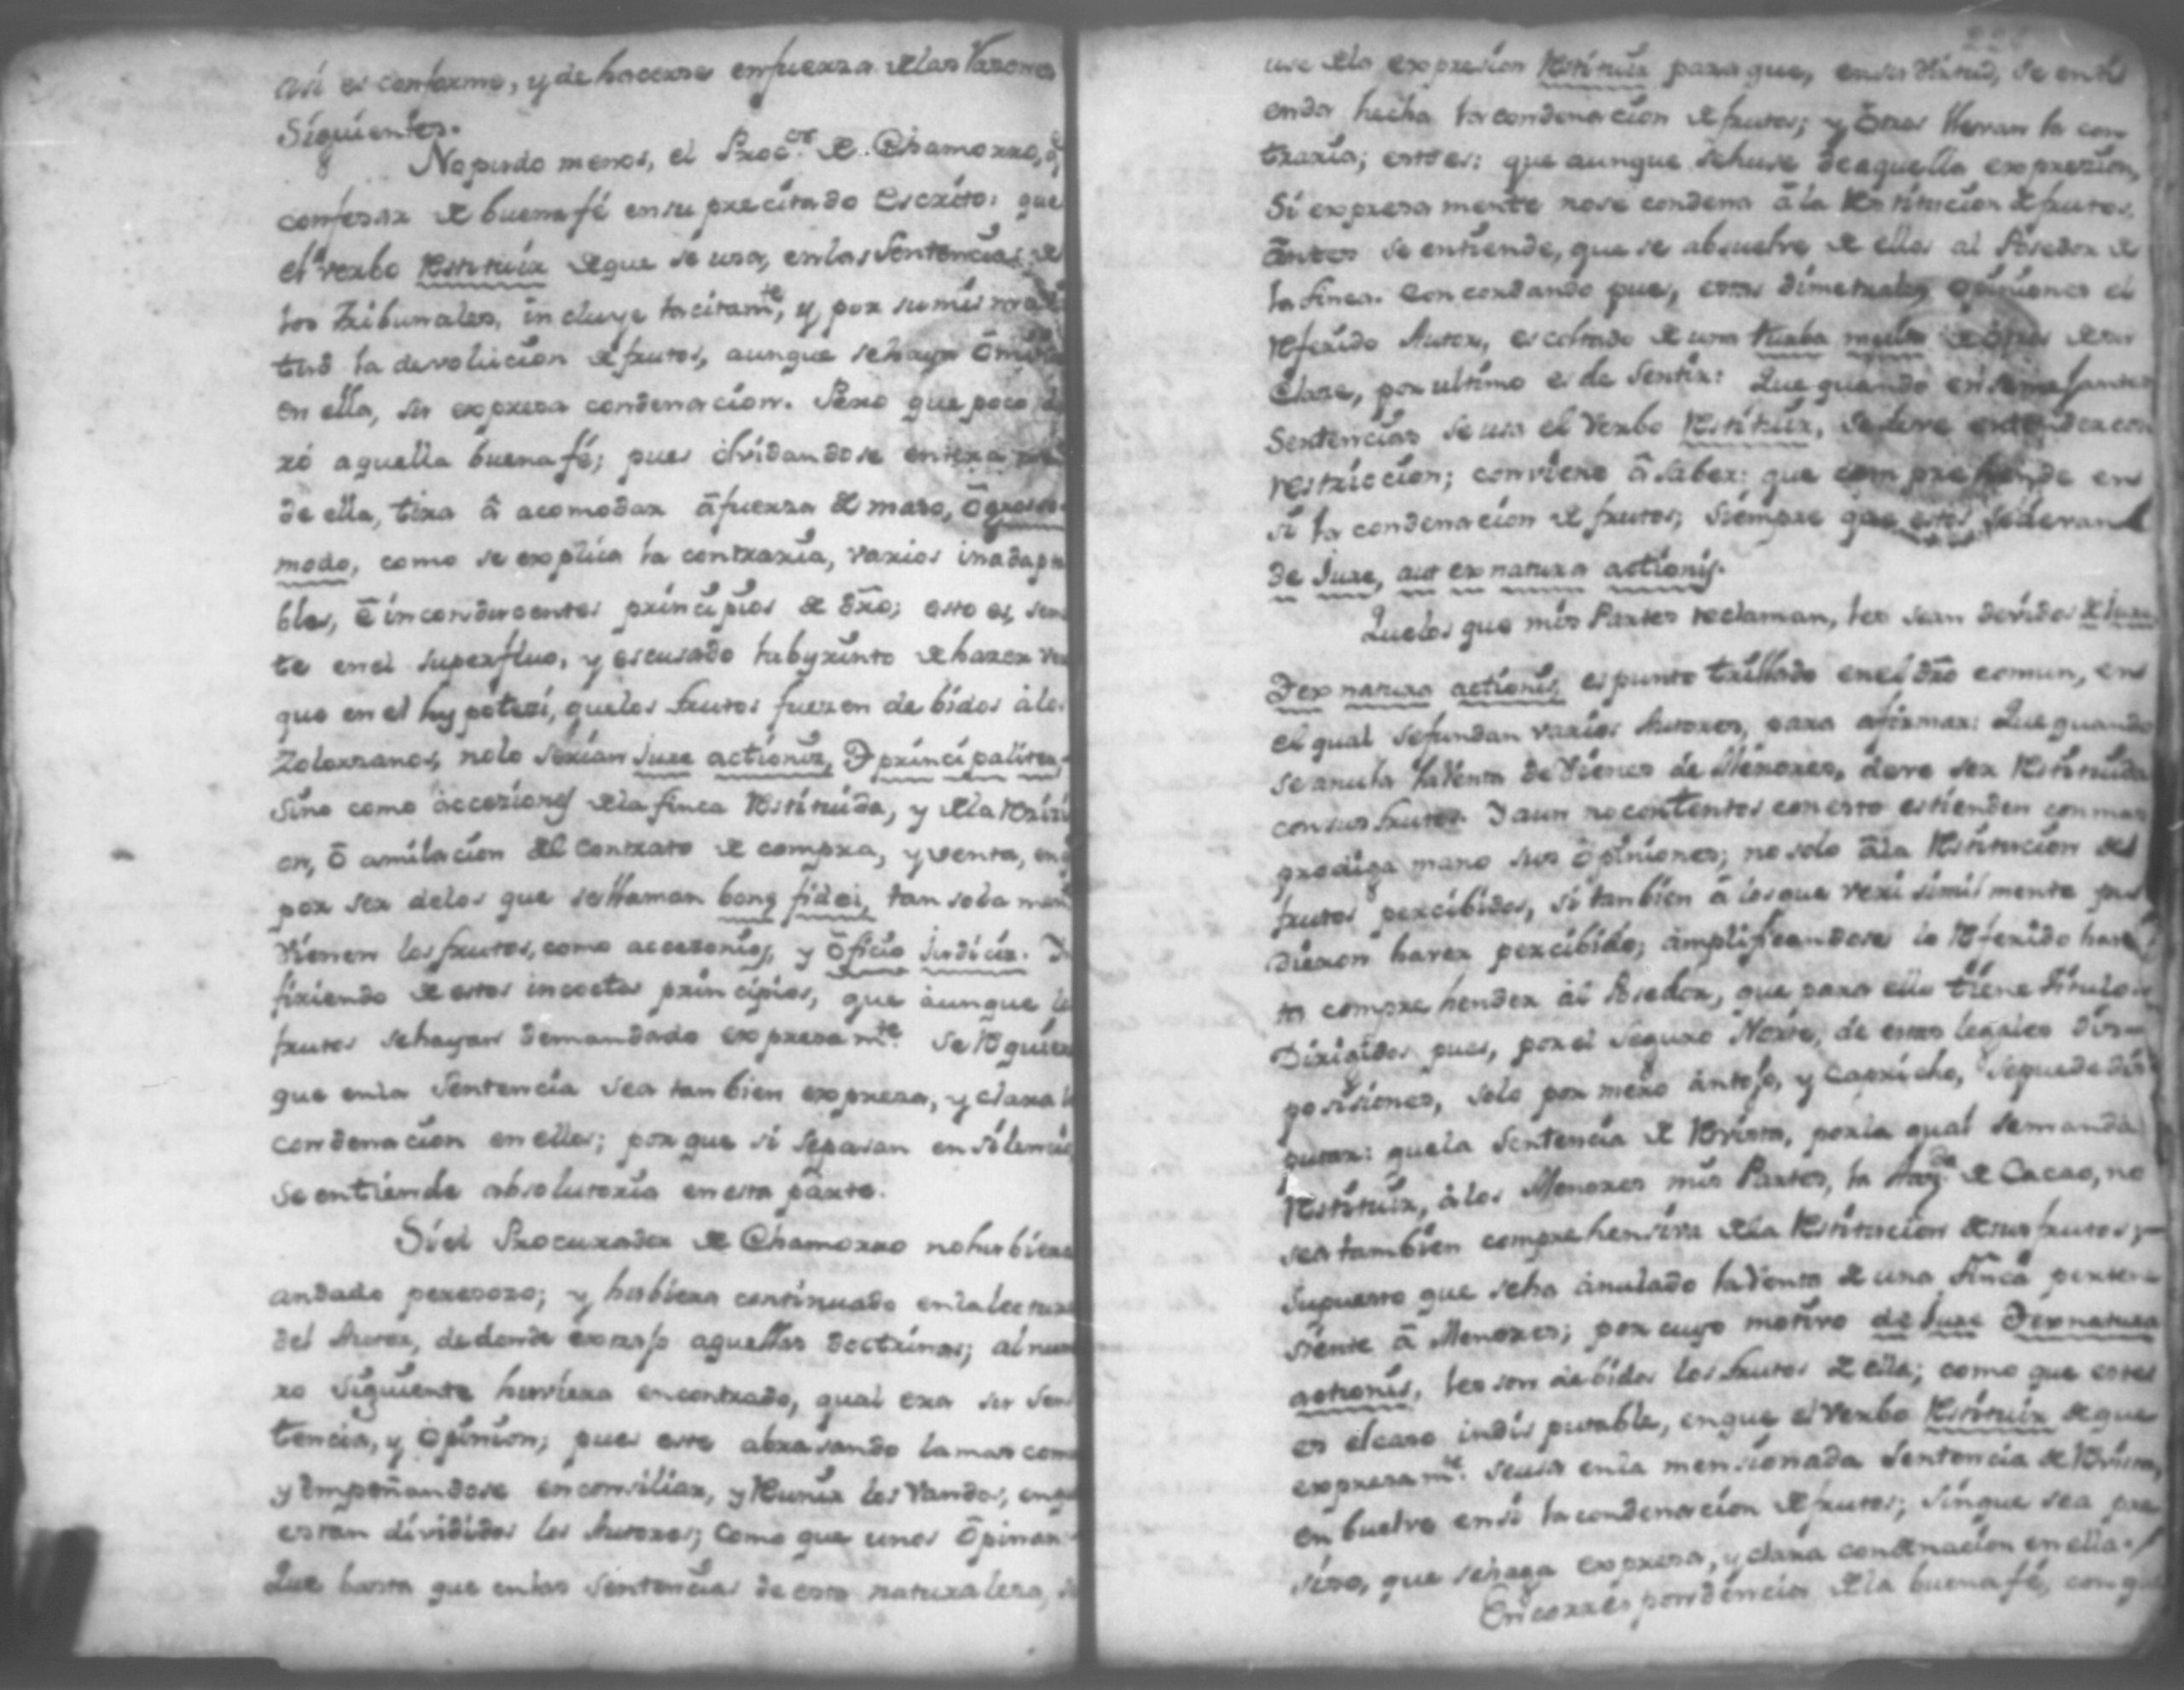 asi es conforme, y de hacerse enfuerza de las razones
Siguientes.
No pudo menos, el Proc.or de Chamorro, q.e
confesar de buena fé en su precitado Escrito: que
el verbo Restituir de que se usa, en las Sentencias de
los Tribunales, incluye tacitam.te, y por su misma vir
tud la devolucion de frutos, aunque se haya ômitido
en ella, su expresa condenacion. Pero que poco du
ró aquella buena fé; pues olvidandose entera m.te
de ella, tira â acomodar âfuerza de mazo, ô grosso
modo, como se explica la contraria, varios inadapta
bles, ê inconducentes principios de dro; esto es, 
te en el superfluo, y escusado labyrinto de hazer ver
que en el hypotesi, que los frutos fuesen debidos â los
Zolorzanos, no lo serian Jure actionis, I principaliter,
Sino como accesiones de la finca Restituida, y de la Rescisi
on, ô anulacion del Contrato de compra, y venta, en q
por ser de los que se llaman bonę fidei, tan sola mente
vienen los frutos, como accesorios, y ôficio Judicis. In
firiendo de estos inectos principios, que aunque los
frutos se hayan demandado expresam.te se Requiere
que en la Sentencia sea tan bien expresa, y clara la
condenacion en ellos; por que si se pasan en silencio
se entiende absolutoria en esta parte.
Si el Procurador de Chamorro no hubiera
andado perezozo; y hubiera continuado en la lectura
del Autor, de donde extrajo aquellas doctrinas; al nume
ro Siguiente huviera encontrado, qual era su Sen
tencia, y ôpinion; pues este abrasando la mas comun
y Empeñandose en consiliar, y Reunir los Vandos, en que
estan divididos los Autores; como que unos ôpinan
Que basta que en las Sentencias de esta naturaleza, se
use de la expresion Restituir para que, en su virtud, se enti
enda hecha la condenacion de frutos; y ôtros llevan la con
traria; esto es: que aunque se huse de aquella expresion,
Si expresa mente no se condena â la Restitucion de frutos,
ântes se entiende, que se absuelve de ellos al Posedor de
la finca. Concordando pues, estas dimetrales opiniones el
Referido Autor, escoltado de una turba multa de ôtros de su
Clase, por ultimo es de Sentir: Que quando en semejantes
Sentencias se usa el Verbo Restituir, se deve entender con
restriccion; conviene â saber: que comprehende en
si la condenacion de frutos; Siempre que estos se devan
de Jure, aut ex natura actionis.
Que los que mis Partes reclaman, les sean devidos de Jure
I ex natura actionis, es punto trillado en el dro comun, en
el qual se fundan varios Autores, para afirmar: Que quando
se anula la Venta de vienes de Menores, deve ser Restituida
con sus frutos. I aun no contentos con esto estienden con mas
prodiga mano sus ôpiniones; no solo âla Restitucion de
frutos percibidos, si tanbien â los que verisimilmente pu
dieron haver percibido; amplificandose lo Referido has
ta comprehender al Posedor, que para ello tiene titulo.
Dirigidos pues, por el seguro Norte, de estas legales dis
posisiones, solo por mero ântojo, y Capricho, se puede dis
putar: que la Sentencia de Revista, por la qual se manda
Restituir, â los Menores mis Partes, la Haz.da de Cacao, no
sea tambien comprehensiva de la Restitucion de sus frutos;
Supuesto que se ha anulado la Venta de una finca pertene
siente â Menores; por cuyo motivo de Jure I ex natura
actionis, les son debidos los frutos de ella; como que este
es el caso indisputable, en que el Verbo Restituir de que
expresam.te se usa en la mensionada Sentencia de Revista,
en buelve en sí la condenacion de frutos; Sin que sea pre
siso, que se haga expresa, y clara condenacion en ella.
En correspondencia de la buena fé, con q